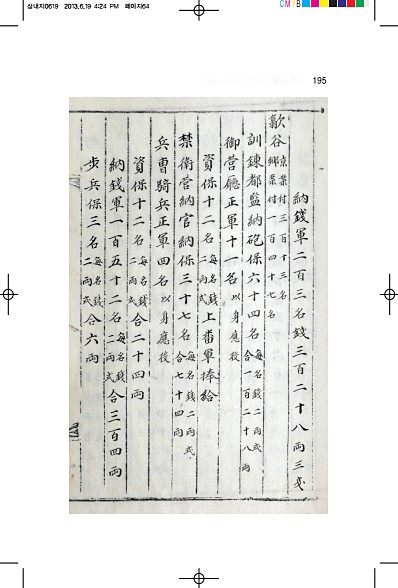 삼내지0619 2013.6.19 4:24 PM 페이지64
CMYB
195
納錢軍二百三名錢三百二十八兩三戔
歙谷京案付三百十三名鄕案付一百四十七名
訓鍊都監納砲保六十四名每名錢二兩式合一百二十八兩
御營廳正軍十一名以身應役
資保十二名每名錢二兩式上番軍捧給
禁衛營納官納保三十七名每名錢二兩式合七十四兩
兵曹騎兵正軍四名以身應役
資保十二名每名錢二兩式合二十四兩
納錢軍一百五十二名每名錢二兩式合三百四兩
步兵保三名每名錢二兩式合六兩